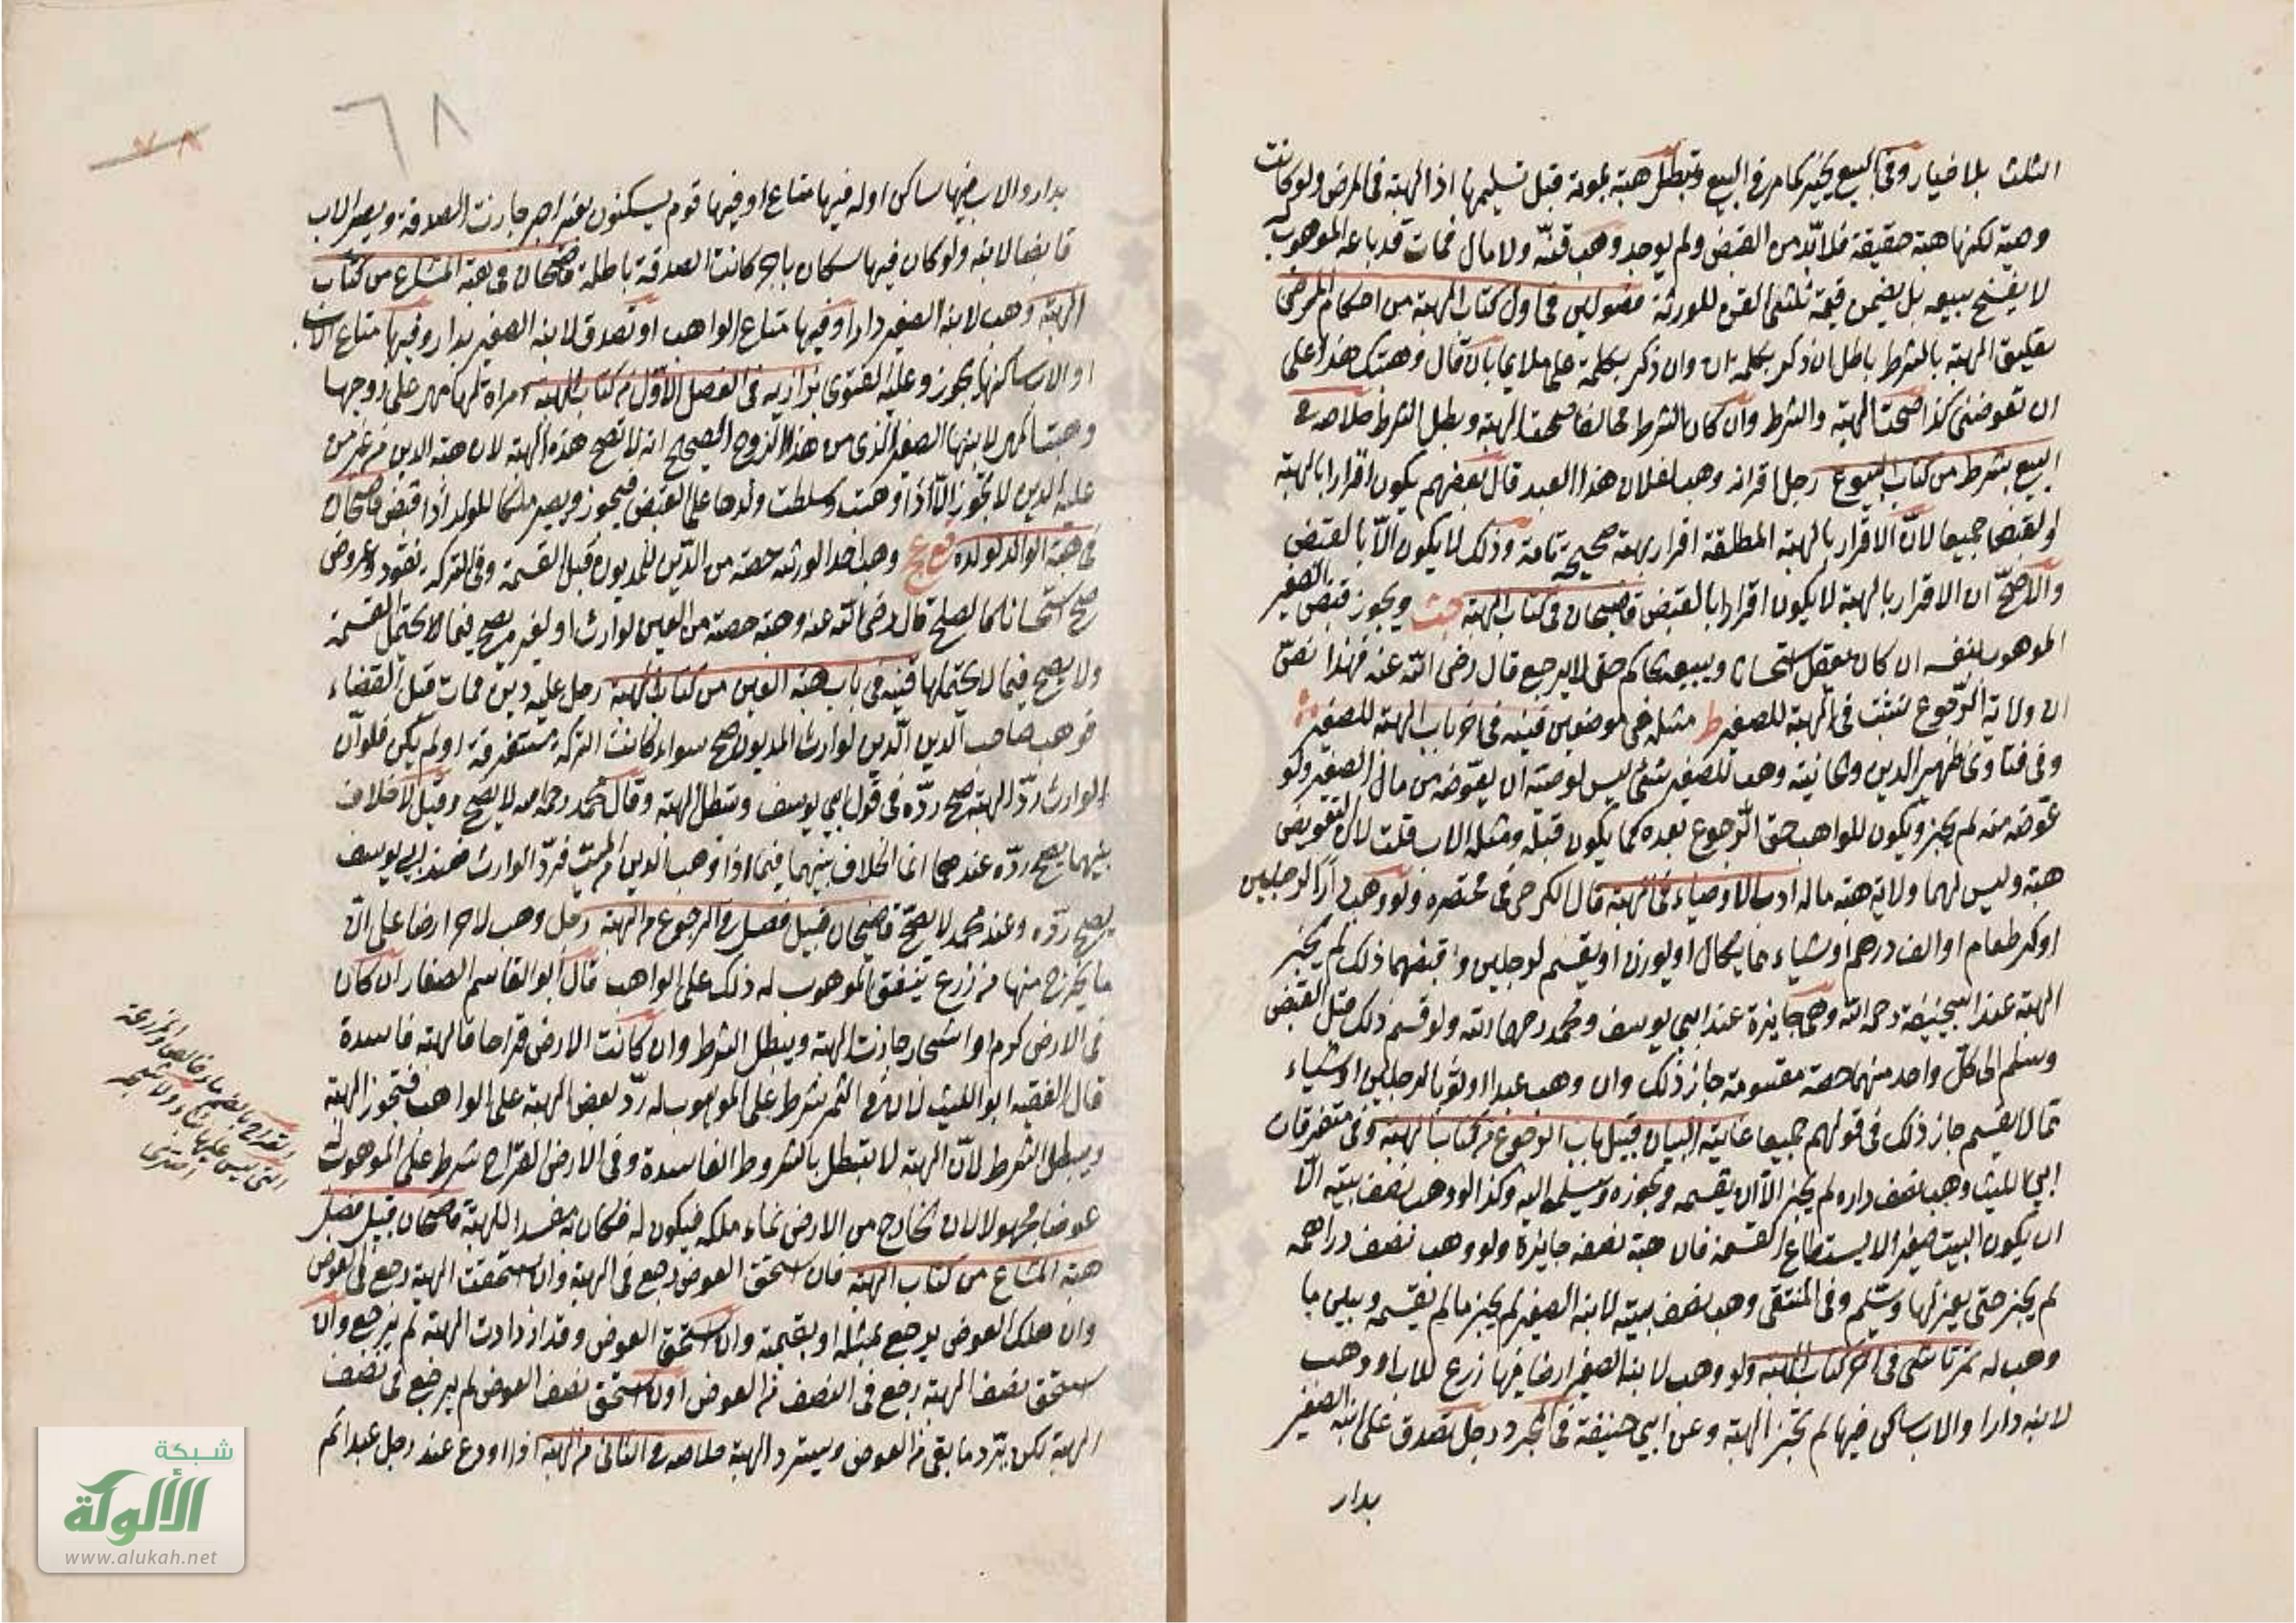 الثلث بلا خيار وفى البيع يخير كما مر فى البيع وتبطل هبته بموته قبل تسليمها اذ الهبة فى المرض ولو كانت
وصية لكنها هبة حقيقة فلا بد من القبض ولم يوجد وهب قنه ولا مال فمات قد باعه الموهوب له
لا يفسخ بيعه بل يضمن قيمة ثلثى القن للورثة فصولين فى اول كتاب الهبة من احكام المرضى
تعليق الهبة بالشرط باطل ان ذكر بكلمة ان وان ذكر بكلمة على ملايما بان قال وهبتك هذا على
ان تعوضنى كذا صحت الهبة والشرط وان كان الشرط مخالفا صحت الهبة وبطل الشرط خلاصه فى
البيع بشرط من كتاب البيوع رجل اقر انه وهب لفلان هذا العبد قال بعضهم يكون اقرارا بالهبة
والقبض جميعا لان الاقرار بالهبة المطلقة اقرار بهبة صحيحة تامة وذلك لا يكون الا بالقبض
والاصح ان الاقرار بالهبة لا يكون اقرارا بالقبض قاضيخان فى كتاب الهبة ويجوز قبض الصغير
الموهوب بنفسه ان كان يعقل استحسانا ويبيعه الحاكم حتى لا يرجع قال رضى الله عنه فهذا نص
ان ولاية الرجوع تثبت فى الهبة للصغير ط مثله فى موضعين قنيه فى اخر باب الهبة للصغير
وفى فتاوى ظهير الدين وهب للصغير شئ ليس لوصيه ان يعوضه من مال الصغير ولو
عوضه منه لم يجز ويكون للواهب حق الرجوع بعده كما يكون قبله ومثله الاب قلت لان التعويض
هبة وليس لهما ولاية هبة ماله ادب الاوصياء فى الهبة قال الكرخى فى مختصره ولو وهب دارا لرجلين
او كر طعام او الف درهم او شياء مما يكال او يوزن او يقسم لرجلين واقبضهما ذلك لم يجز
الهبة عند ابيحنيفة رحمه الله وهى جايزة عند ابى يوسف ومحمد رحمهما الله ولو قسم ذلك قبل القبض
وسلم الى كل واحد منهما حصة مقسومة جاز ذلك وان وهب عبدا او ثوبا لرجلين او شياء
مما لا يقسم جاز ذلك فى قولهم جميعا غاية البيان قبيل باب الرجوع من كتاب الهبة وفى متفرقات
ابى الليث وهب نصف داره لم يجز الا ان يقسمه ويحوزه ويسلمه اليه وكذا لو وهب نصف بيته الا
ان يكون البيت صغيرا لا يستطاع القسمة فان هبة نصفه جايزة ولو وهب نصف دراهمه
لم يجز حتى يعزلها ويسلم وفى المنتقى وهب نصف بيته لابنه الصغير لم يجز ما لم يقسمه ويبين ما
وهب له تمرتاشى فى اخر كتاب الهبة ولو وهب لابنه الصغير ارضا فيها زرع للاب او وهب
لابنه دارا والاب ساكن فيها لم تجز الهبة وعن ابى حنيفة فى المجرد رجل تصدق على ابنه الصغير
بدار
٦٨
بدار والاب فيها ساكن او له فيها متاع او فيها قوم يسكنون بغير اجر جازت الصدقة ويصير الاب
قابضا لابنه ولو كان فيها سكان باجر كانت الصدقة باطلة قاضيخان فى هبة المشاع من كتاب
الهبة وهب لابنه الصغير دارا وفيها متاع الواهب او تصدق لابنه الصغير بدار وفيها متاع الاب
او الاب ساكنها يجوز وعليه الفتوى بزازيه فى الفصل الاول من كتاب الهبة امراة لها مهر على زوجها
وهبت المهر لابنها الصغير الذى من هذا الزوج الصحيح انه لا تصح هذه الهبة لان هبة الدين من غير من
عليه الدين لا تجوز الا اذا وهبت وسلطت ولدها على القبض فيجوز ويصير ملكا للولد اذا قبض قاضيخان
فى هبة الوالد لولده وهب احد الورثة حصته من الدين للمديون قبل القسمة وفى التركة نقود وعروض
صح استحسانا كما لصلح قال رضى الله عنه وهبة حصته من العين لوارث او لغيره يصح فيما لا يحتمل القسمة
ولا يصح فيما لا يحتملها قنيه فى باب هبة الدين من كتاب الهبة رجل عليه دين فمات قبل القضاء
فوهب صاحب الدين الدين لوارث المديون صح سواء كانت التركة مستغرقة او لم يكن فلو ان
الوارث رد الهبة صح رده فى قول ابى يوسف وتبطل الهبة وقال محمد رحمه الله لا يصح وقيل لا خلاف
بينهما يصح رده عندهما انما الخلاف بينهما فيما اذا وهب الدين من الميت فرد الوارث فعند ابى يوسف
يصح رده وعند محمد لا يصح قاضيخان قبيل فصل فى الرجوع من الهبة رجل وهب لاخر ارضا على ان
ما يخرج منها من زرع ينفق الموهوب له ذلك على الواهب قال ابو القاسم الصفار ان كان
فى الارض كرم او اشجار جازت الهبة ويبطل الشرط وان كانت الارض قراحا فالهبة فاسدة
قال الفقيه ابو الليث لان فى الثمر شرط على الموهوب له رد بعض الهبة على الواهب فتجوز الهبة
ويبطل الشرط لان الهبة لا تبطل بالشروط الفاسدة وفى الارض القراح شرط على الموهوب له
عوضا مجهولا لان الخارج من الارض نماء ملكه فيكون له فكان مفسدا للهبة قاضيخان قبيل فصل
هبة المشاع من كتاب الهبة فان استحق العوض رجع فى الهبة وان استحقت الهبة رجع فى العوض
وان هلك العوض يرجع بمثله او بقيمته وان استحق العوض وقد ازدادت الهبة لم يرجع وان
استحق نصف الهبة رجع فى النصف من العوض وان استحق نصف العوض لم يرجع فى نصف
الهبة لكن يرد ما بقى من العوض ويسترد الهبة خلاصه فى الثانى من الهبة اذا اودع عند رجل عبدا ثم
والقراح بالضم ماء خالص والمزرعة
التى ليس عليها بناء ولا شجر
اختري
شبكة
الألوكة
www.alukah.net